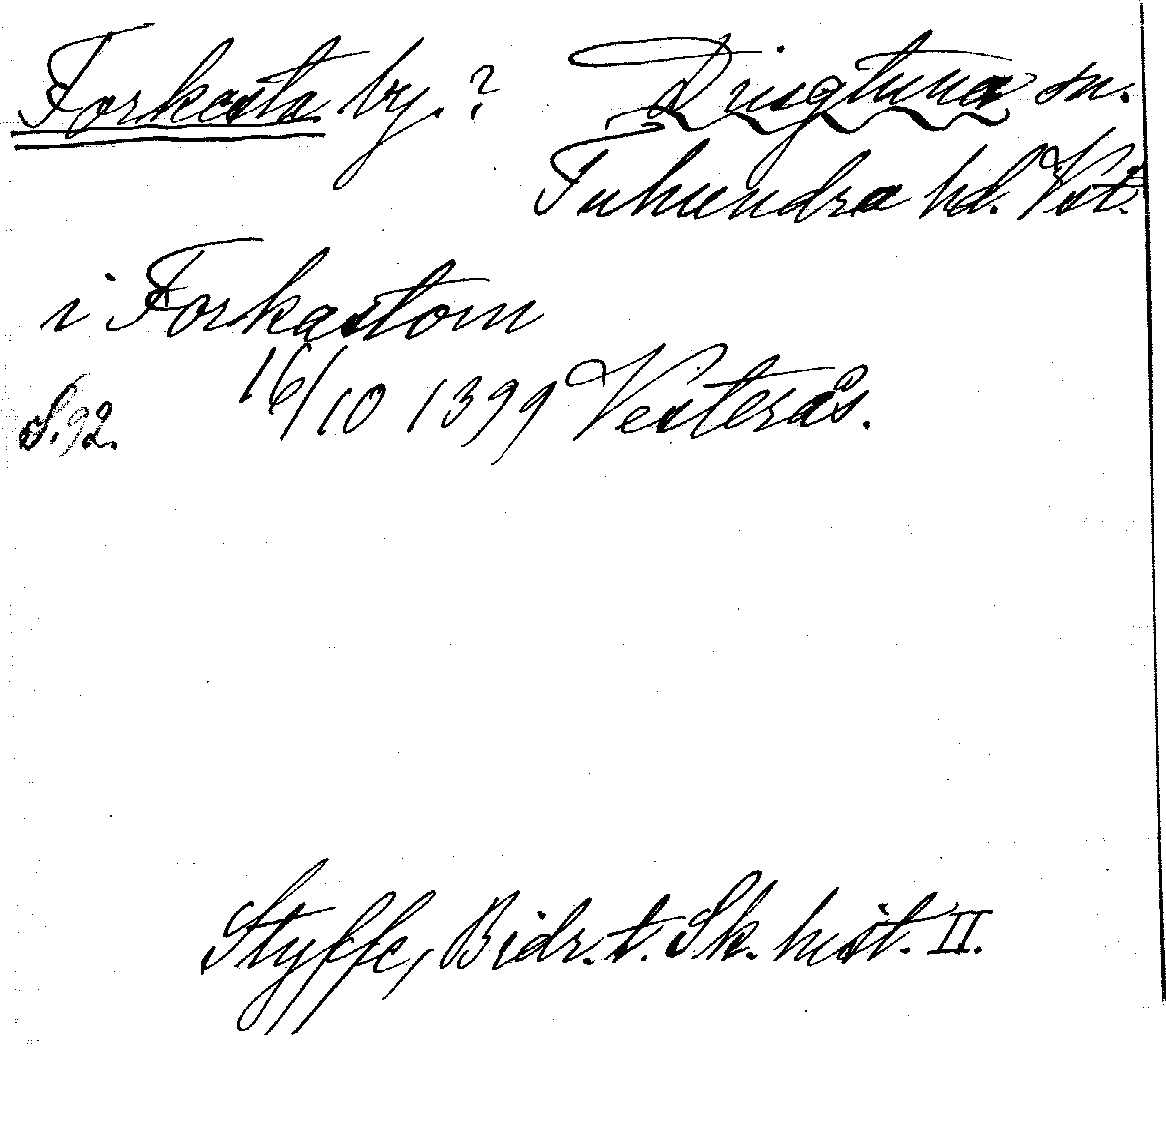 Forkasta by.? Dingtuna sn.
Tuhundra hd. Vst.
i Forkastom
S. 92. 16/10 1399 Vesterås.
Styffe, Bidr. t. Sk. hist. II.